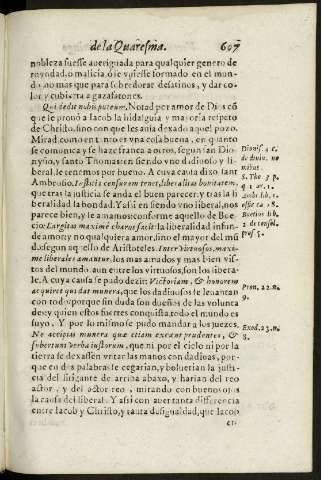 de la Quaresma. 607
nobleza fuesse aueriguada para qualquier genero de
no mas que para sobredorar desatinos, y dar co-
lor y cubierta a gazafatones.
Qui dedit nobis puteum, Notad por amor de Dios cō
que le prouò a Iacob la hidalguia y mayoria respeto
de Christo, sino con que les auia dexado aquel pozo.
Mirad como entonto er vna cosa buena, en quanto
se comunica y se haze franca a otros, segun san Dio-
nysio, y santo Thomas: en siendo vno dadiuoso y li-
beral, le tenemos por bueno. A cuya causa dixo san
Ambrosio, Iustitia censuram tenet, liberalitas bonitatem,
que tras la justicia se anda el buen parecer, y tras la li
beralidad la bondad. Y assi en siendo vno liberal, nos
parece bien, y le amamos conforme aquello de Boe-
cio: Largitas maximè charos facit: la liberalidad infun-
de amor, y no qualquiera amor, sino el mayor del mū
do, segun aquello de Aristoteles. Inter virtuosos, maxi-
me liberales amantur. los mas amados y mas bien vis-
tos del mundo aun entre los virtuosos, son los libera-
le. A cuya causa se pudo dezir: Victoriam, & honorem
acquiret qui dat munera, que los dadiuosos se leuantan
con todo: porque sin duda son dueños de las volunta
des: y quien estos fuertes conquista, todo el mundo es
suyo. Y por lo mismo se pudo mandar a los juezes,
Ne accipias munera quæ etiam excæcant prudentes, &
subuertunt verba iustorum, que ni por el cielo ni por la
tierra se dexassen vntar las manos con dadiuas, por-
que en dos palabras se cegarian, y boluerian la justi-
cia del litigante de arriba abaxo, y harian del reo
actor, y del actor reo, mirando con buenos ojos
la causa del liberal. Y assi con auer tanta differencia
entre Iacob y Christo, y tanta desigualdad, que Iacob
Dionis. 4 c.
de diuin. no
minibus
S. Tho. 3 p.
q 1 ar. 1.
Amb. lib. 1.
offic. ca 28.
Boetius lib.
2 de consol.
pros 5.
Prou. 22. n.
9.
Exod. 23. n.
8.